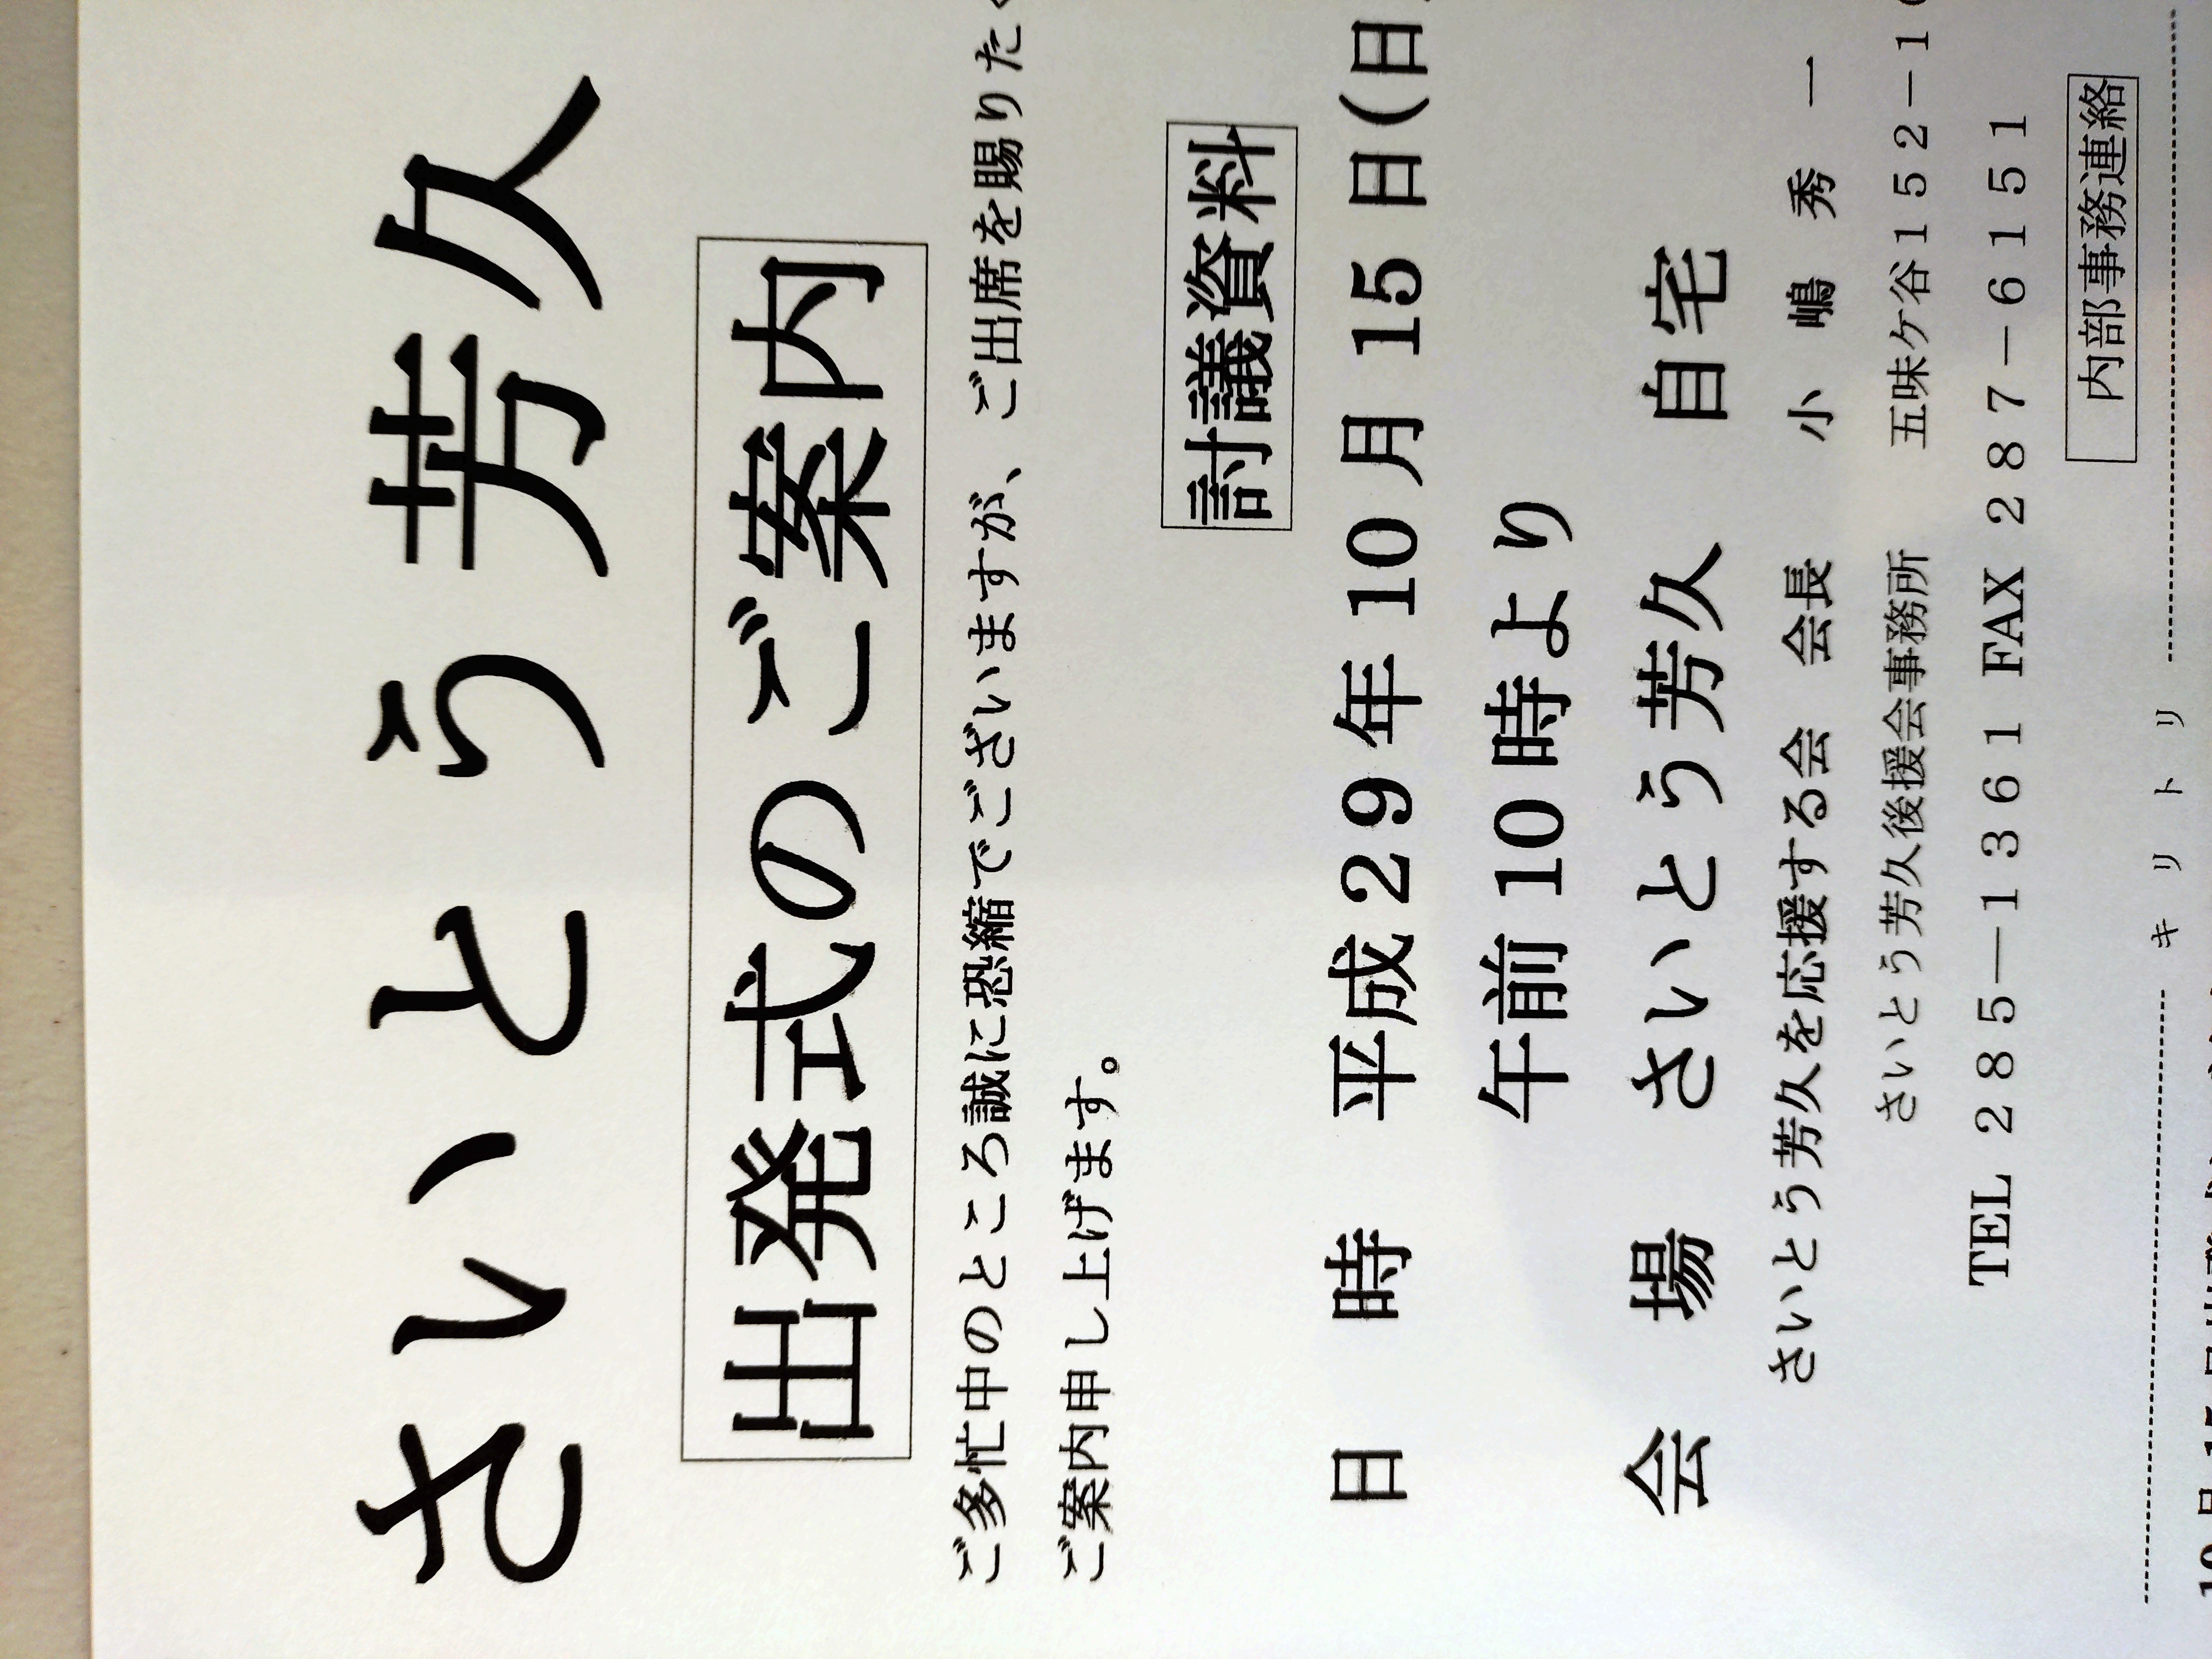 さいとう芳久
出発式のご案内
ご多忙中のところ誠に恐縮でございますが、ご出席を賜りたく
ご案内申し上げます。
討議資料
日 時 平成29年10月15日(日
午前10時より
会 場 さいとう芳久 自宅
さいとう芳久を応援する会 会長 小 嶋 秀 一
さいとう芳久後援会事務所 五味ケ谷1152-1
TEL 285-1361 FAX 287-6151
内部事務連絡
キ リ ト リ